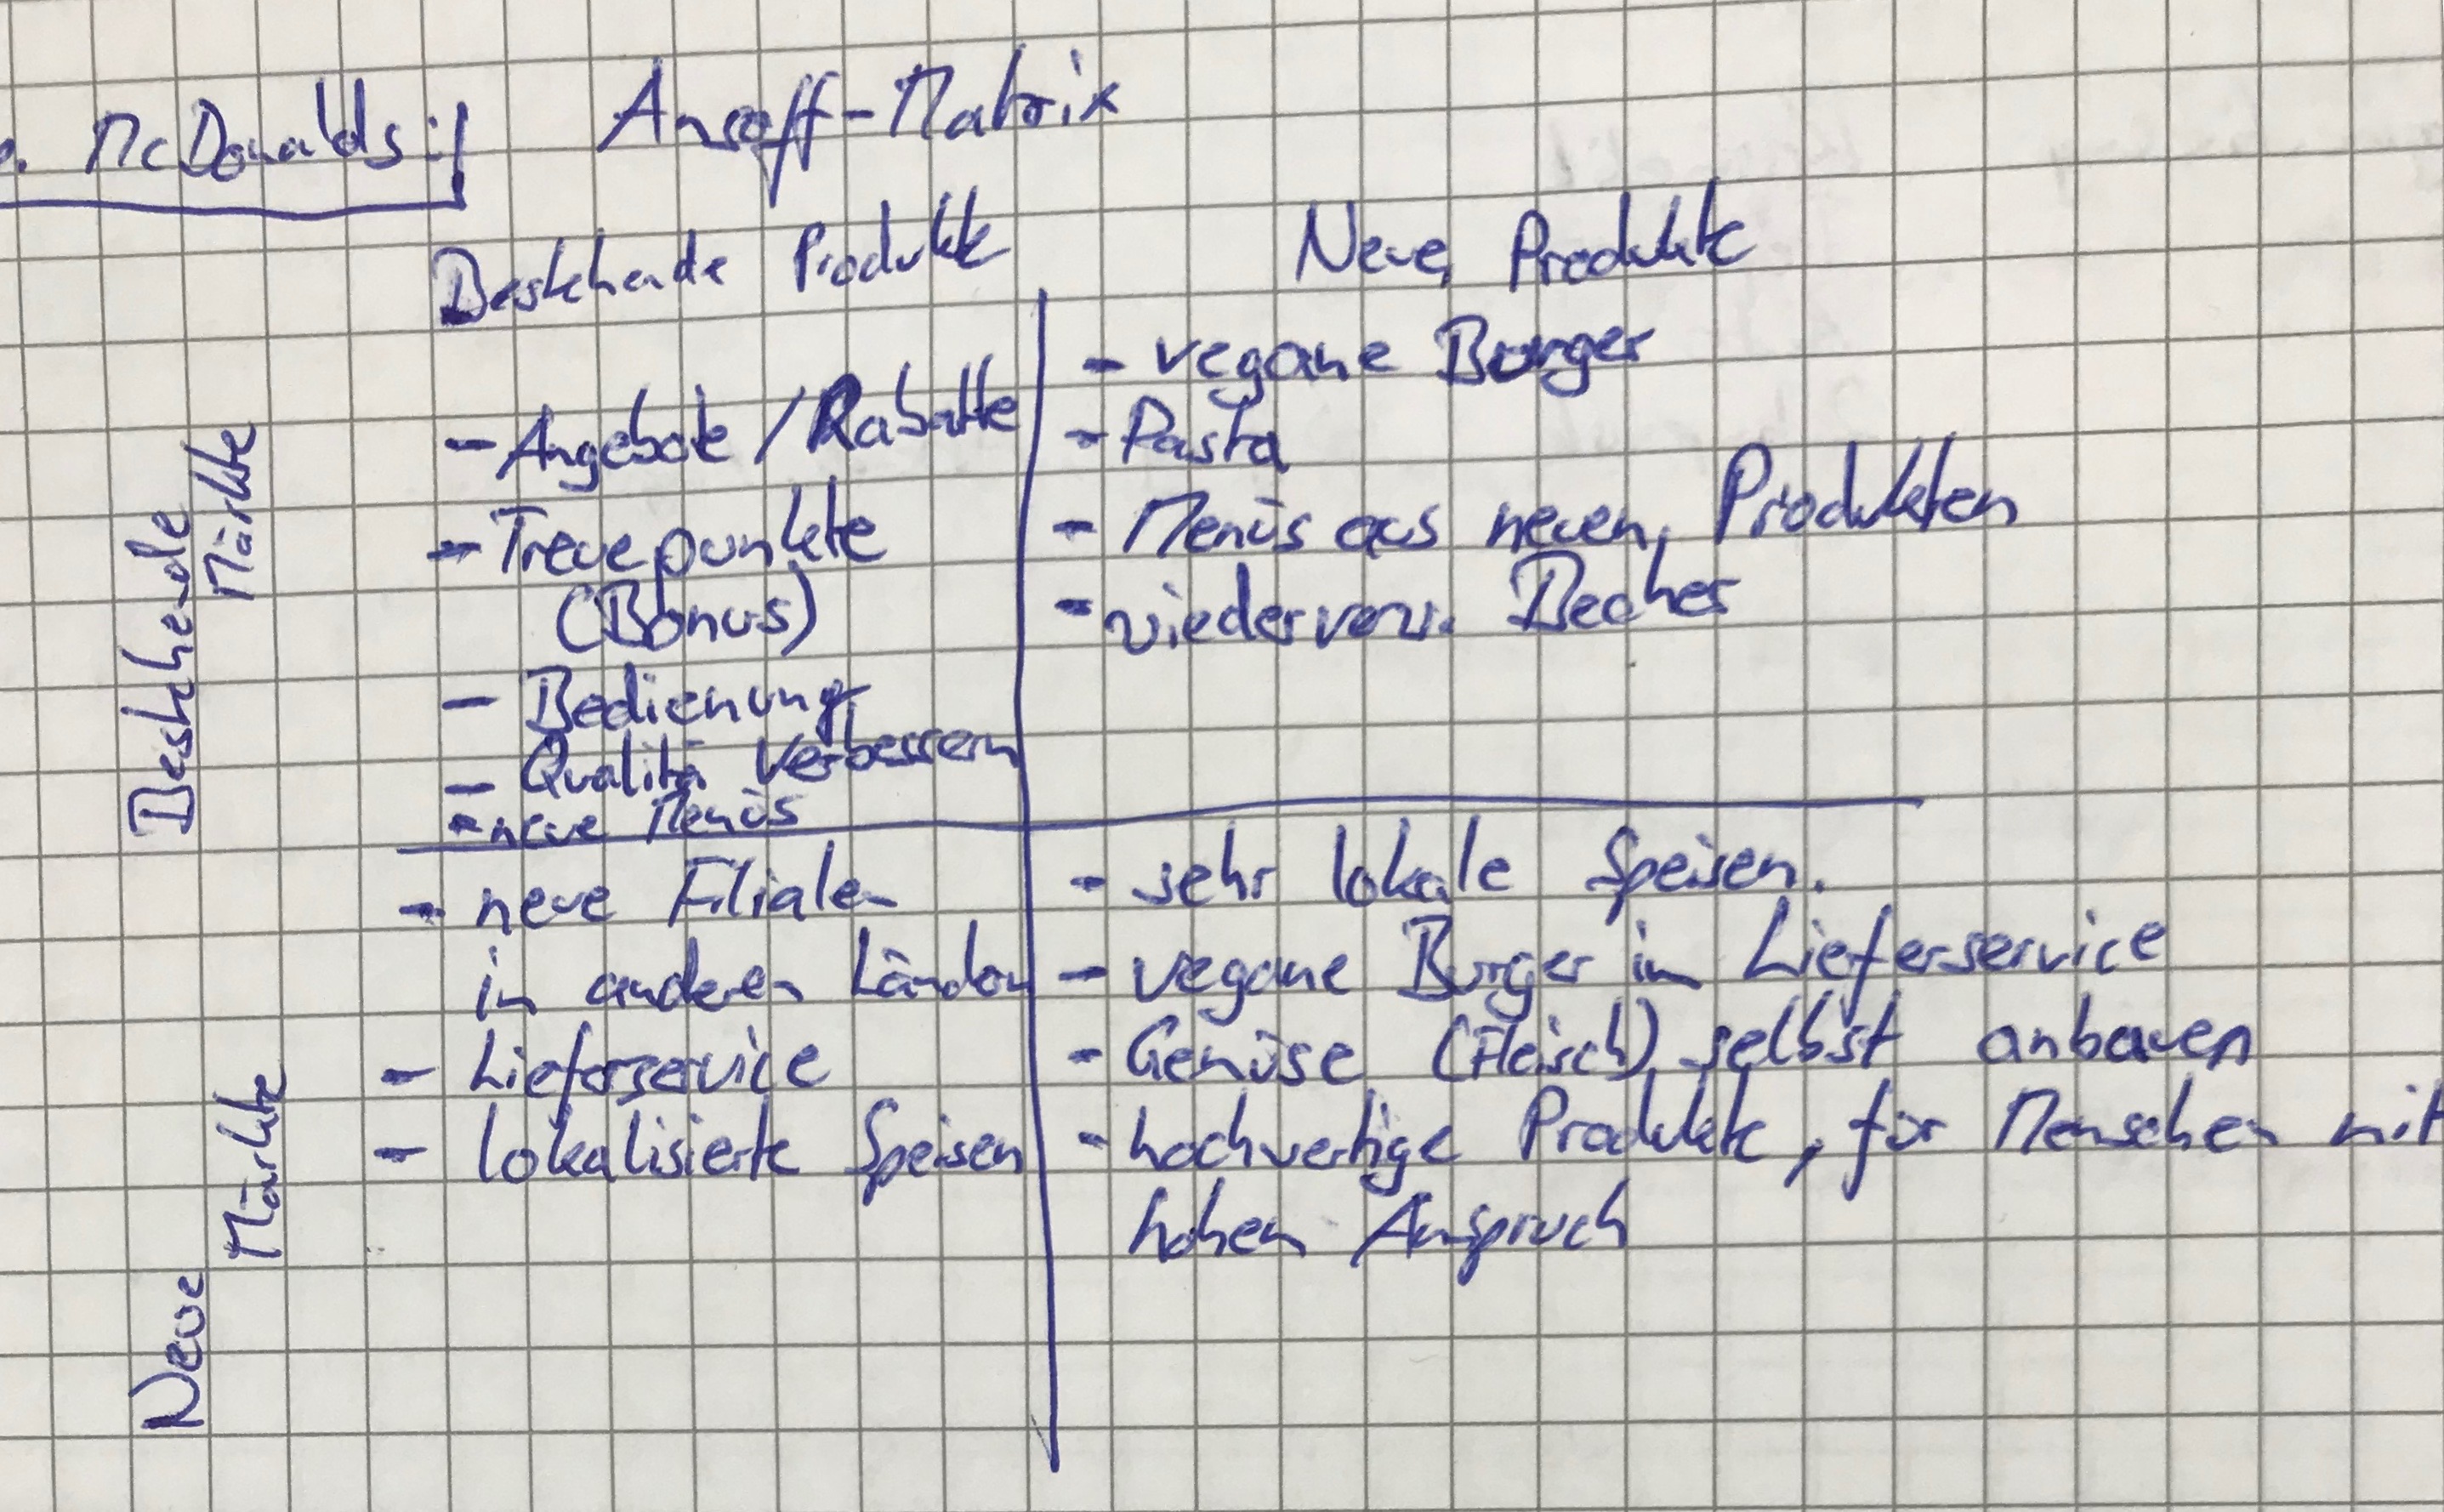 McDonalds: Ansoff-Matrix
Bestehende Produkte
Neue Produkte
Bestehende
Märkte
- Angebote / Rabatte
- Treuepunkte
(Bonus)
- Bedienung
- Qualität verbessern
- neue Menüs
- vegane Burger
- Pasta
- Menüs aus neuen Produkten
- wiederverw. Becher
Neue
Märkte
- neue Filialen
in anderen Ländern
- Lieferservice
- lokalisierte Speisen
- sehr lokale Speisen.
- vegane Burger im Lieferservice
- Gemüse (Fleisch) selbst anbauen
- hochwertige Produkte, für Menschen mit
hohen Anspruch